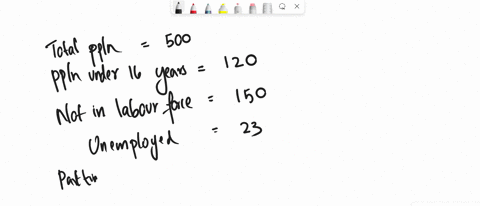 Total ppln = 500
ppln under 16 years = 120
Not in labour force = 150
Unemployed = 23
Part tim